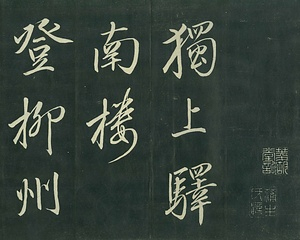 獨上驛
南楼
登柳州